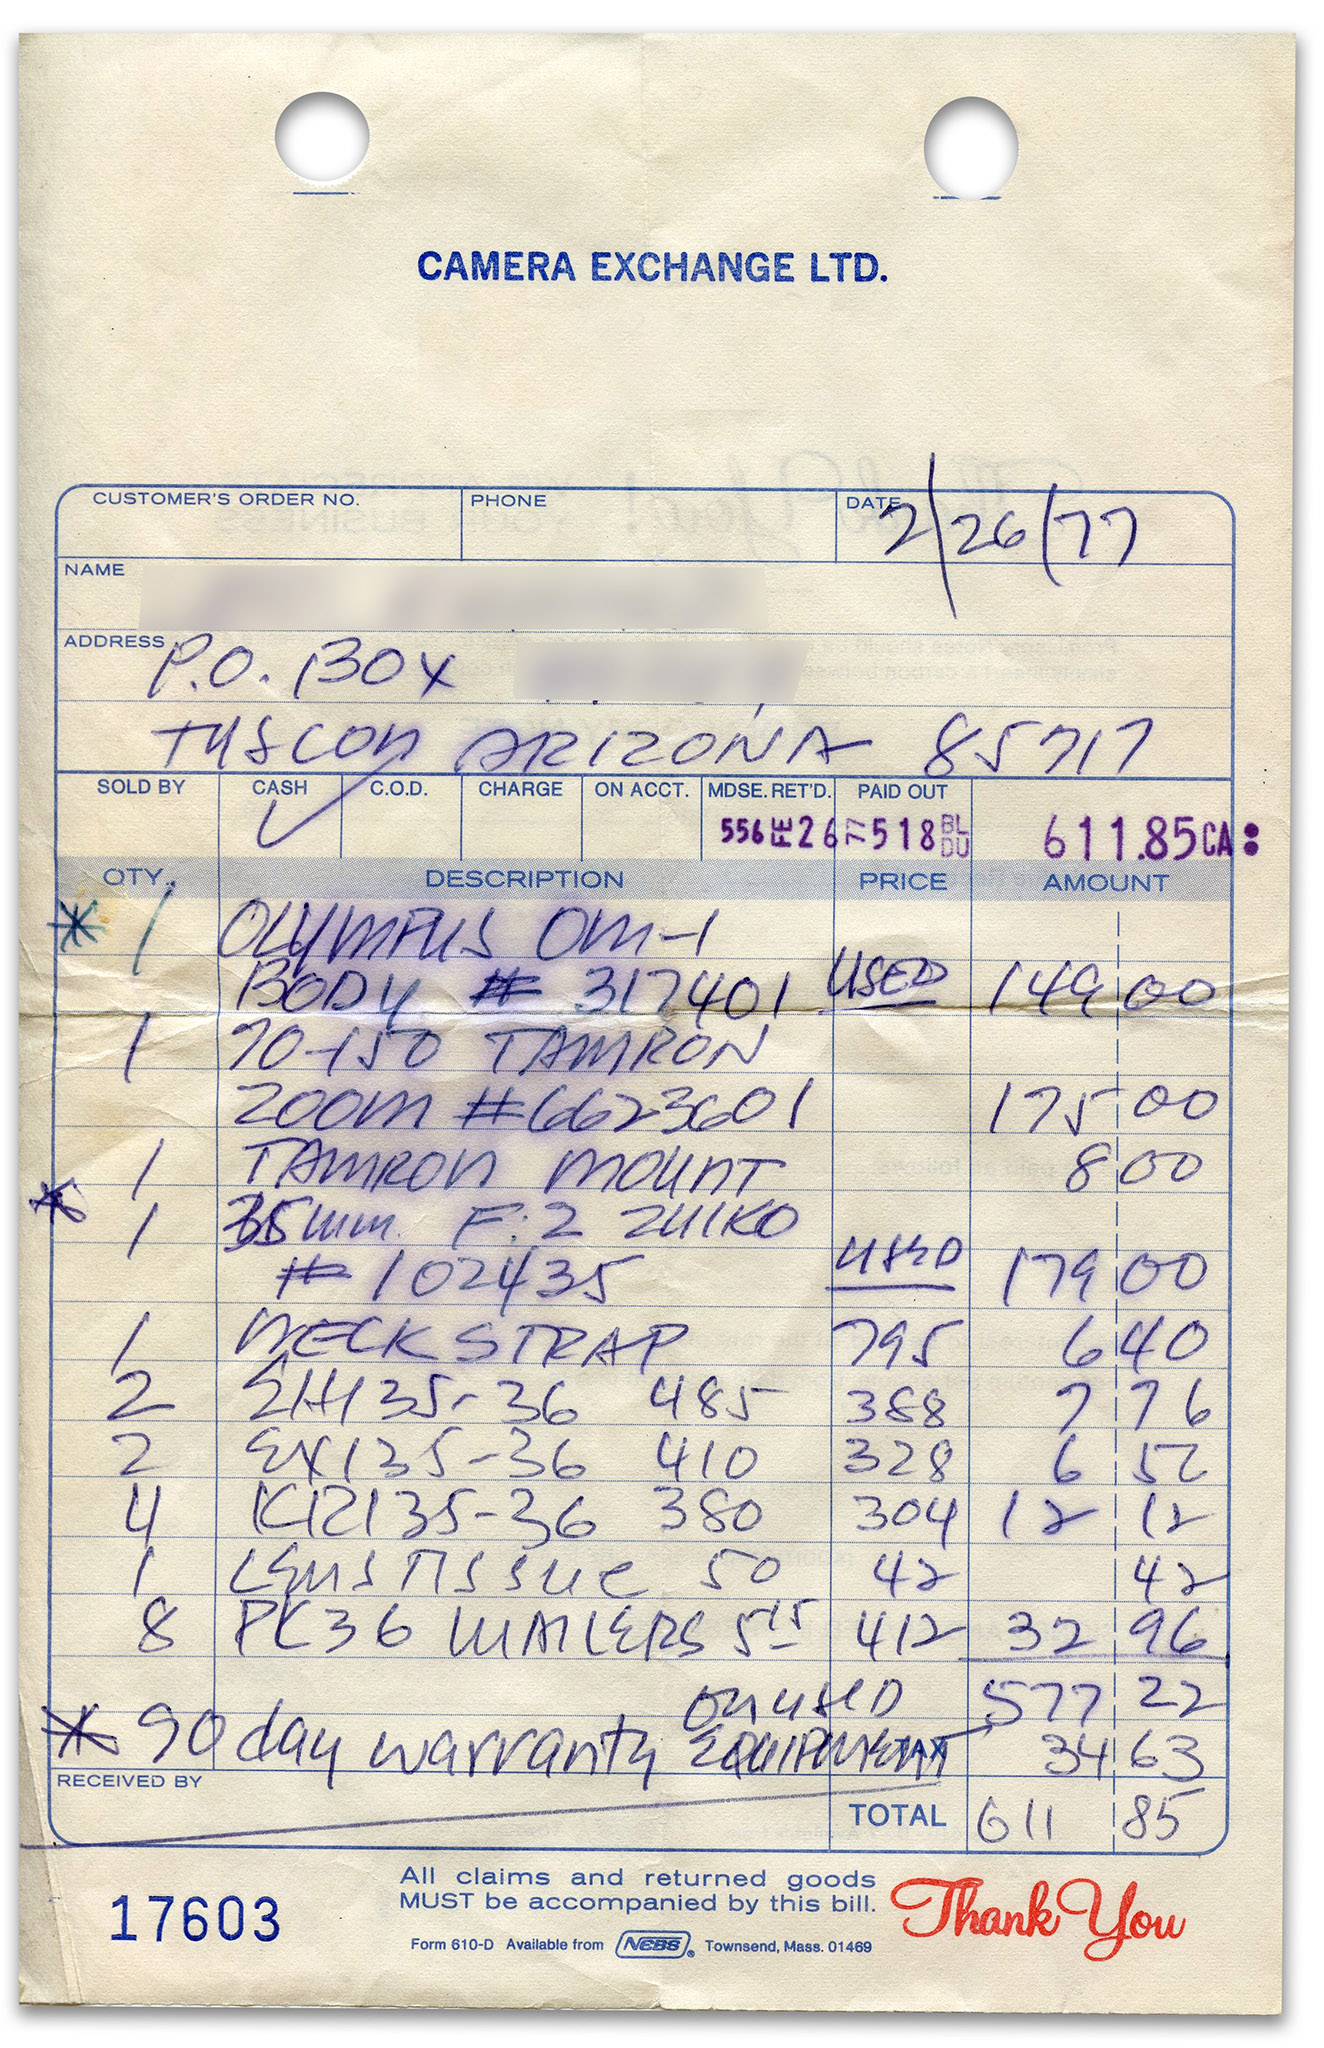 CAMERA EXCHANGE LTD.
CUSTOMER'S ORDER NO. PHONE DATE 2/26/77
NAME
ADDRESS P.O. BOX
TUSCON ARIZONA 85717
SOLD BY CASH ✓ C.O.D. CHARGE ON ACCT. MDSE. RET'D. PAID OUT
556 FE 26 77 518 BL DU 611.85 CA
QTY. DESCRIPTION PRICE AMOUNT
* 1 OLYMPUS OM-1
BODY # 317401 USED 149 00
1 70-150 TAMRON
ZOOM #6623601 175 00
1 TAMRON MOUNT 8 00
* 1 35mm F:2 ZUIKO
# 102435 USED 179 00
1 NECK STRAP 795 6 40
2 EH135-36 485 388 7 76
2 EX135-36 410 328 6 56
4 KR135-36 380 304 12 12
1 LENS TISSUE 50 42 42
8 PK36 MAILERS 515 412 32 96
ON USED 577 22
* 90 day warranty EQUIPMENT TAX 34 63
RECEIVED BY
TOTAL 611 85
17603
All claims and returned goods
MUST be accompanied by this bill.
Thank You
Form 610-D Available from NEBS ® Townsend, Mass. 01469